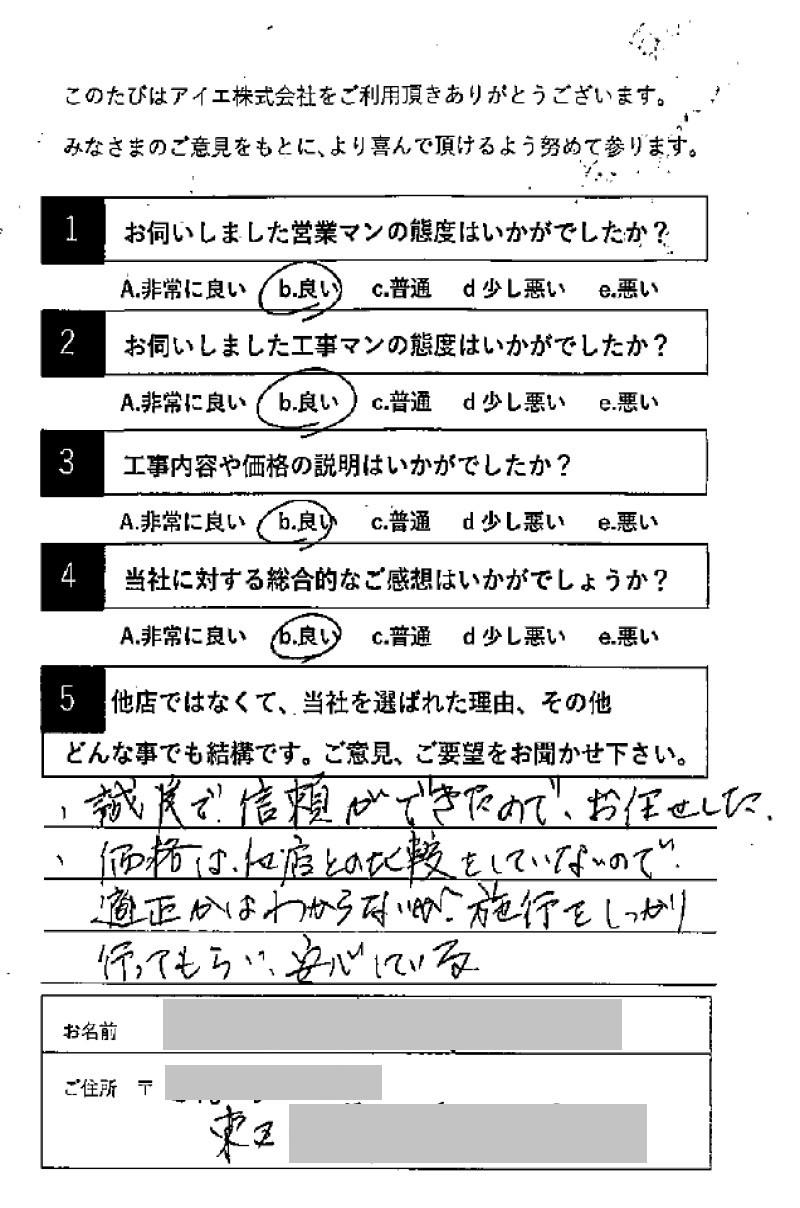 このたびはアイエ株式会社をご利用頂きありがとうございます。
みなさまのご意見をもとに、より喜んで頂けるよう努めて参ります。
1 お伺いしました営業マンの態度はいかがでしたか？
A.非常に良い b.良い c.普通 d 少し悪い e.悪い
2 お伺いしました工事マンの態度はいかがでしたか？
A.非常に良い b.良い c.普通 d 少し悪い e.悪い
3 工事内容や価格の説明はいかがでしたか？
A.非常に良い b.良い c.普通 d 少し悪い e.悪い
4 当社に対する総合的なご感想はいかがでしょうか？
A.非常に良い b.良い c.普通 d 少し悪い e.悪い
5 他店ではなくて、当社を選ばれた理由、その他
どんな事でも結構です。ご意見、ご要望をお聞かせ下さい。
、誠実で、信頼ができたので、お任せした.
、価格は、他店との比較をしていないので、
適正かはわからないが、施行をしっかり
行ってもらい、安心している
お名前
ご住所 〒
東区